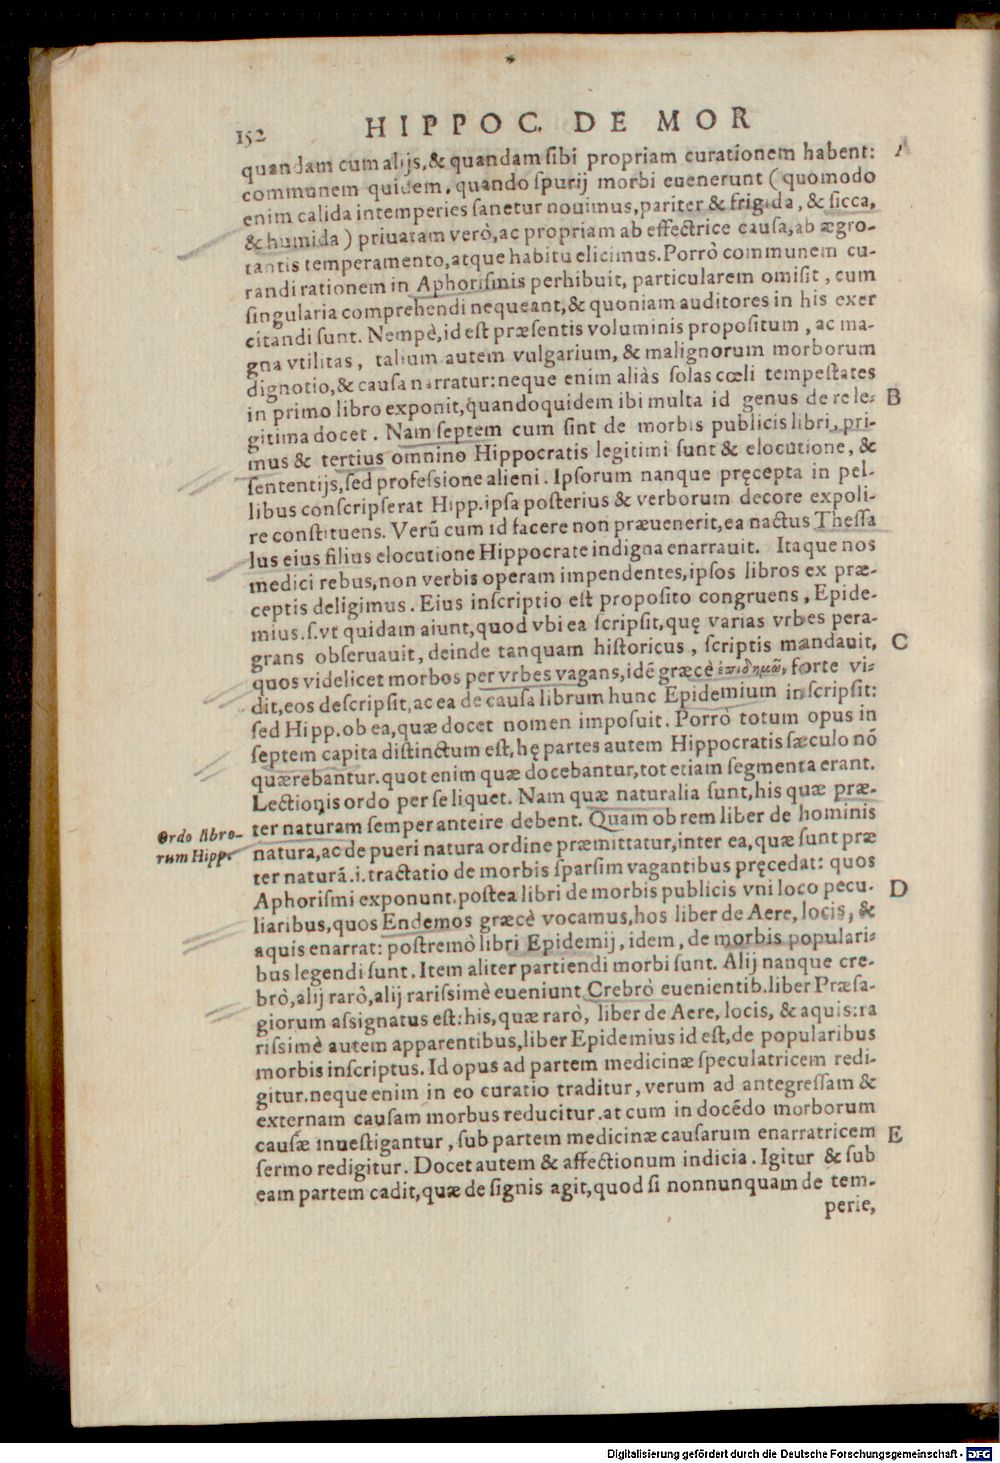 152 HIPPOC. DE MOR
quandam cum alijs, & quandam sibi propriam curationem habent: A
communem quidem, quando spurij morbi euenerunt (quomodo
enim calida intemperies sanetur nouimus, pariter & frigida, & sicca,
& humida) priuatam verò, ac propriam ab effectrice causa, ab ægro-
tantis temperamento, atque habitu elicimus. Porrò communem cu-
randi rationem in Aphorismis perhibuit, particularem omisit, cum
singularia comprehendi nequeant, & quoniam auditores in his exer
citandi sunt. Nempè, id est præsentis voluminis propositum, ac ma-
gna vtilitas, talium autem vulgarium, & malignorum morborum
dignotio, & causa narratur: neque enim aliàs solas cœli tempestates
in primo libro exponit, quandoquidem ibi multa id genus de re le- B
gitima docet. Nam septem cum sint de morbis publicis libri, pri-
mus & tertius omnino Hippocratis legitimi sunt & elocutione, &
sententijs, sed professione alieni. Ipsorum nanque pręcepta in pel-
libus conscripserat Hipp. ipsa posterius & verborum decore expoli-
re constituens. Verũ cum id facere non præuenerit, ea nactus Thessa
lus eius filius elocutione Hippocrate indigna enarrauit. Itaque nos
medici rebus, non verbis operam impendentes, ipsos libros ex præ-
ceptis deligimus. Eius inscriptio est proposito congruens, Epide-
mius. s. vt quidam aiunt, quod vbi ea scripsit, quę varias vrbes pera-
grans obseruauit, deinde tanquam historicus, scriptis mandauit, C
quos videlicet morbos per vrbes vagans, idẽ græcè ἐπιδημῶν, forte vi-
dit, eos descripsit, ac ea de causa librum hunc Epidemium inscripsit:
sed Hipp. ob ea, quæ docet nomen imposuit. Porrò totum opus in
septem capita distinctum est, hę partes autem Hippocratis sæculo nõ
quærebantur. quot enim quæ docebantur, tot etiam segmenta erant.
Lectionis ordo per se liquet. Nam quæ naturalia sunt, his quæ præ-
ter naturam semper anteire debent. Quam ob rem liber de hominis
Ordo libro-
rum Hipp.
natura, ac de pueri natura ordine præmittatur, inter ea, quæ sunt præ
ter naturã. i. tractatio de morbis sparsim vagantibus pręcedat: quos
Aphorismi exponunt. postea libri de morbis publicis vni loco pecu- D
liaribus, quos Endemos græcè vocamus, hos liber de Aere, locis, &
aquis enarrat: postremò libri Epidemij, idem, de morbis populari-
bus legendi sunt. Item aliter partiendi morbi sunt. Alij nanque cre-
brò, alij rarò, alij rarissimè eueniunt Crebrò euenientib. liber Præsa-
giorum assignatus est: his, quæ rarò, liber de Aere, locis, & aquis: ra
rissimè autem apparentibus, liber Epidemius id est, de popularibus
morbis inscriptus. Id opus ad partem medicinæ speculatricem redi-
gitur. neque enim in eo curatio traditur, verum ad antegressam &
externam causam morbus reducitur. at cum in docẽdo morborum
causæ inuestigantur, sub partem medicinæ causarum enarratricem E
sermo redigitur. Docet autem & affectionum indicia. Igitur & sub
eam partem cadit, quæ de signis agit, quod si nonnunquam de tem-
perie,
Digitalisierung gefördert durch die Deutsche Forschungsgemeinschaft - DFG